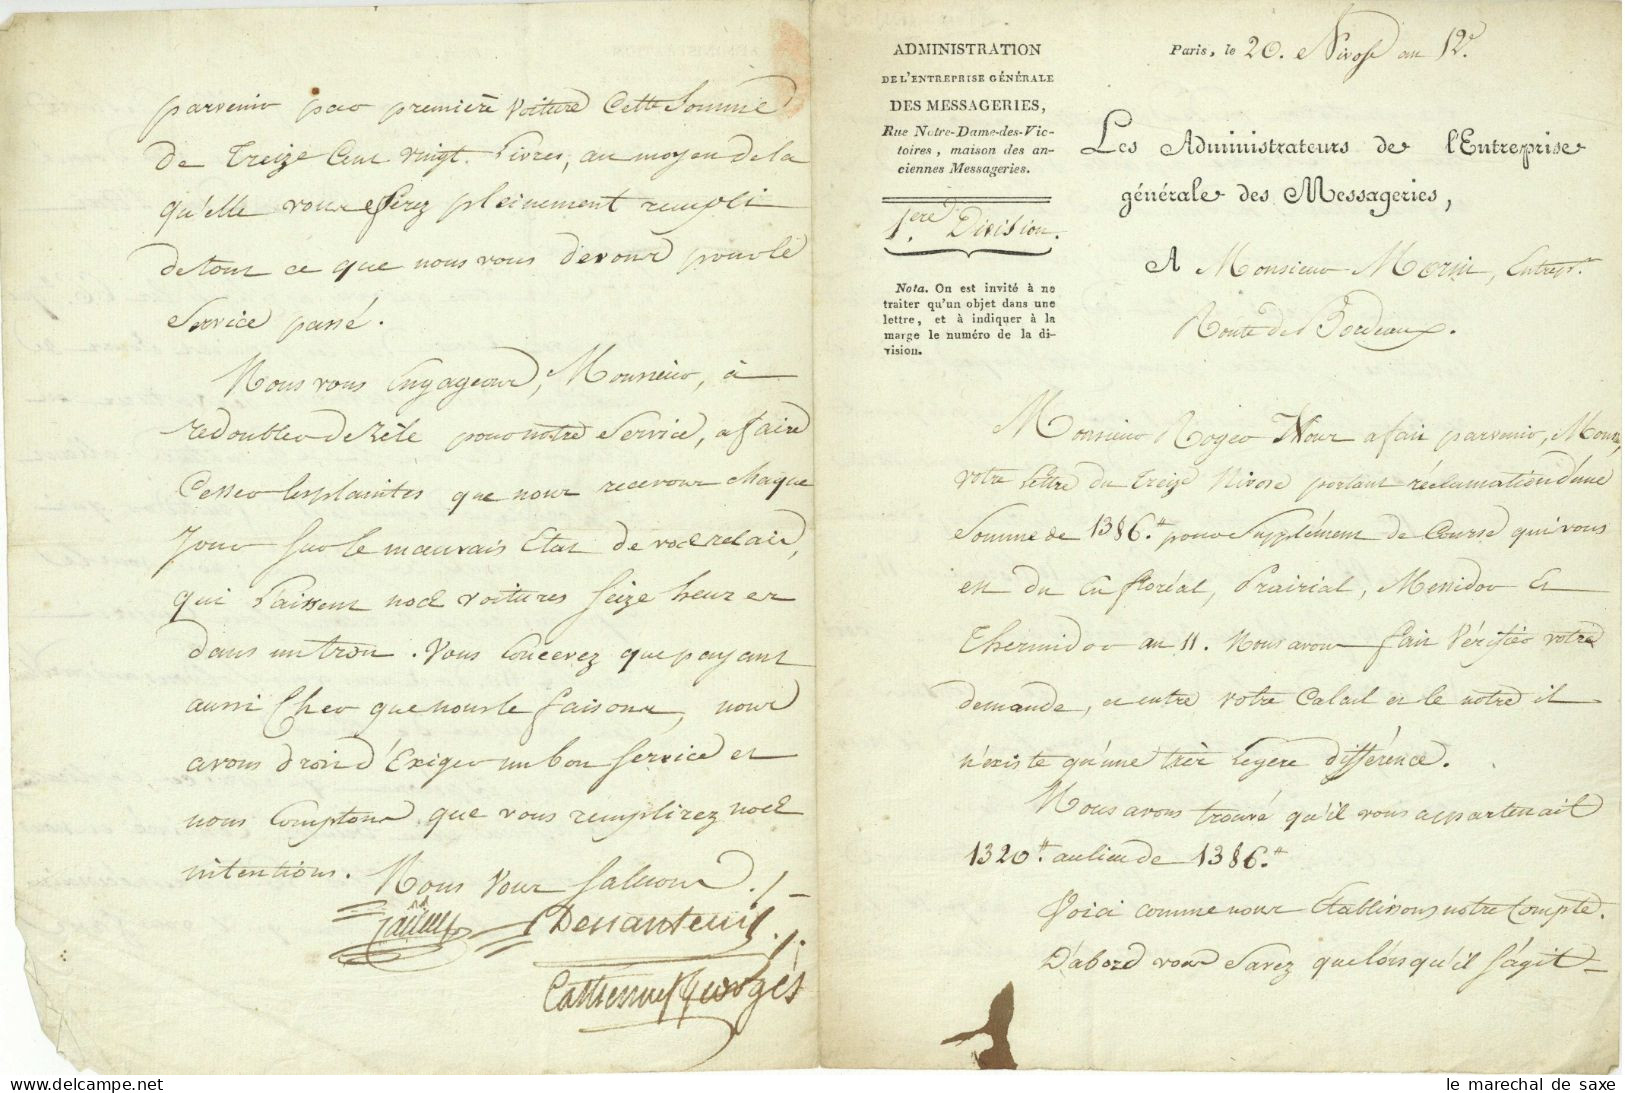 ADMINISTRATION
DE L'ENTREPRISE GÉNÉRALE
DES MESSAGERIES,
Rue Notre-Dame-des-Vic-
toires, maison des an-
ciennes Messageries.
1.ere Division.
Nota. On est invité à ne
traiter qu'un objet dans une
lettre, et à indiquer à la
marge le numéro de la di-
vision.
Paris, le 20. Nivose an 12e.
Les Administrateurs de l'Entreprise
générale des Messageries,
A Monsieur Morin, Entrepr.
Route de Bordeaux.
Monsieur Roger Nous a fait parvenir, Mons,
votre lettre du treize Nivose portant réclamation d'une
Somme de 1386.tt pour Supplément de Course qui vous
est du en floréal, Prairial, Messidor et
Thermidor an 11. Nous avons fait Vérifier votre
demande, et entre votre Calcul et le notre il
n'existe qu'une très legere différence.
Nous avons trouvé qu'il vous appartenait
1320.tt au lieu de 1386.tt
Voici comme nous Etablissons notre Compte.
D'abord vous Savez que lorsqu'il S'agit
parvenir par première Voiture Cette Somme
de Treize Cent vingt Livres, au moyen de la
qu'elle vous serez pleinement rempli
de tout ce que nous vous devons pour le
Service passé.
Nous vous Engageons, Monsieur, à
redoubler de Zèle pour notre Service, a faire
Cesser les plaintes que nous recevons Chaque
Jour Sur le mauvais Etat de vos relais,
qui Laissent nos voitures Seize heures
dans un trou. Vous Concevez que payant
aussi Cher que nous le faisons, nous
avons droit d'Exiger un bon Service et
nous Comptons que vous remplirez nos
intentions. Nous Vous Saluons.
Dénanteuil
Catherine Georges
le marechal de saxe